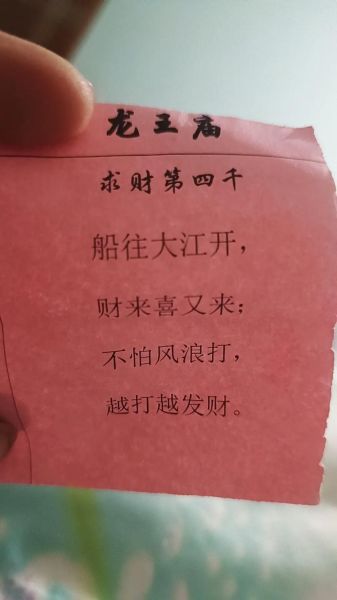 龙王庙
求财第四千
船往大江开，
财来喜又来；
不怕风浪打，
越打越发财。